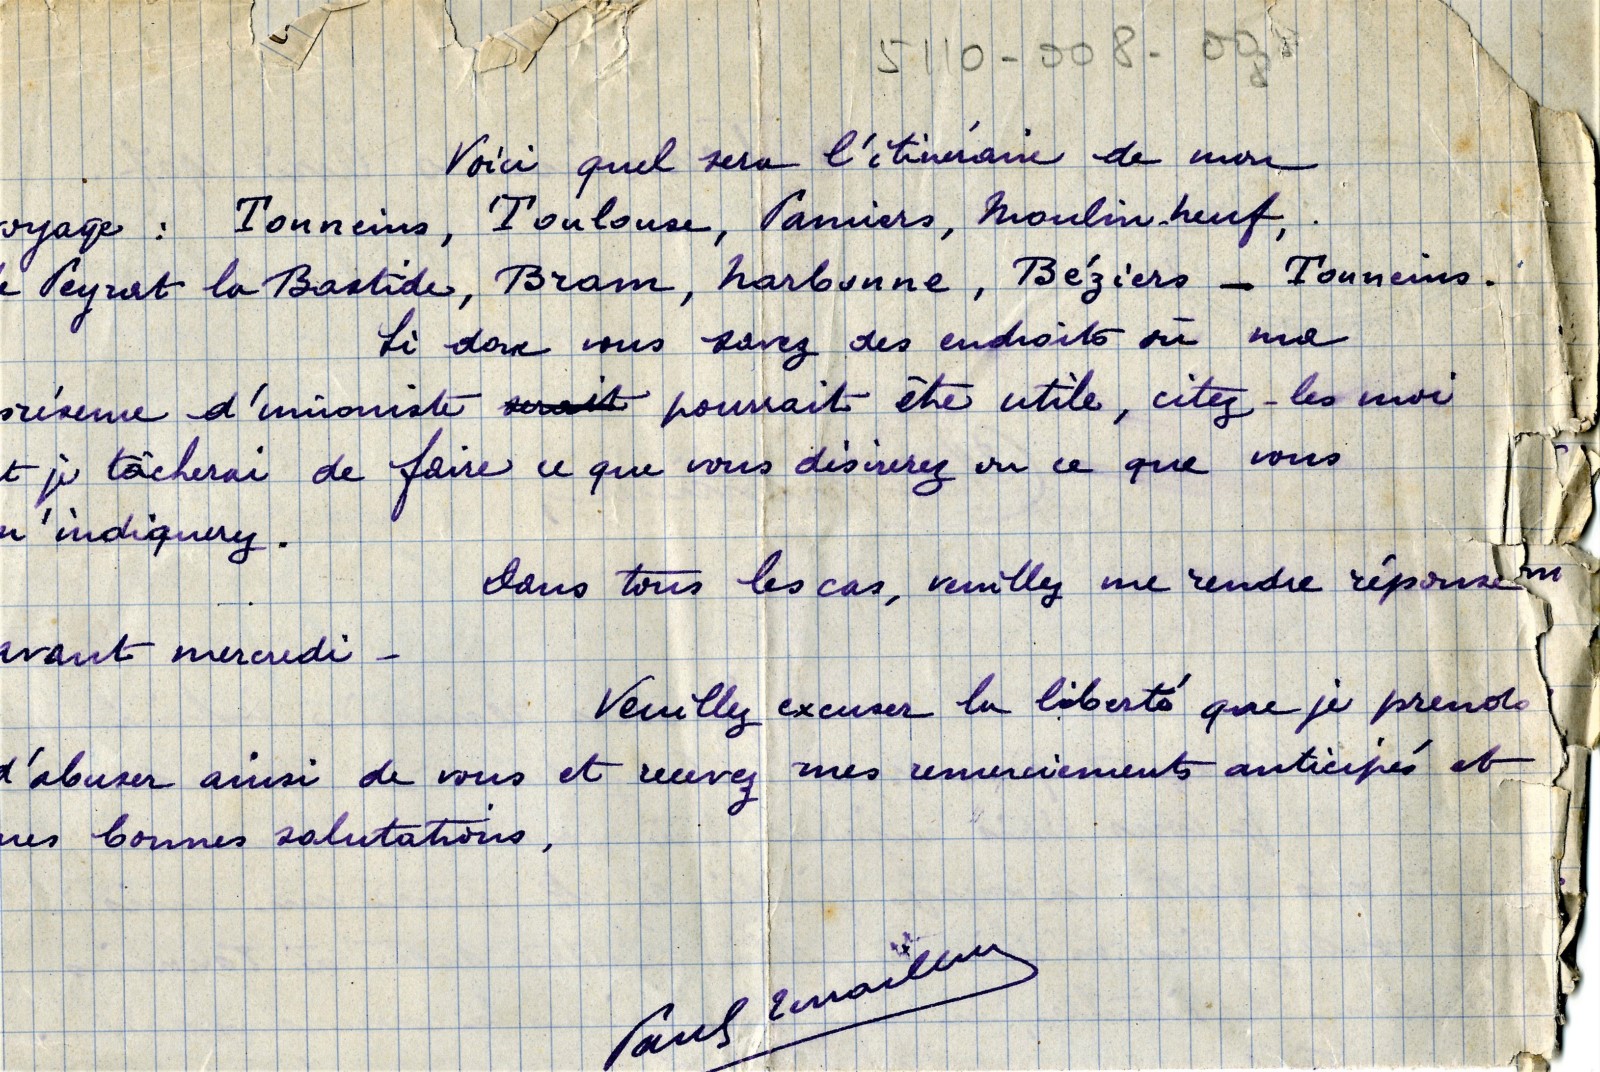 5110-008-008
Voici quel sera l'itinéraire de mon
oyage : Tonneins, Toulouse, Pamiers, Moulin-neuf,
e Peyrat la Bastide, Bram, Narbonne, Béziers — Tonneins.
Si donc vous savez des endroits où ma
présence d'unioniste serait pourrait être utile, citez-les moi
t je tâcherai de faire ce que vous désirerez ou ce que vous
m'indiquerez.
Dans tous les cas, veuillez me rendre réponse
avant mercredi -
Veuillez excuser la liberté que je prends
d'abuser ainsi de vous et recevez mes remerciements anticipés et
mes bonnes salutations,
Paul